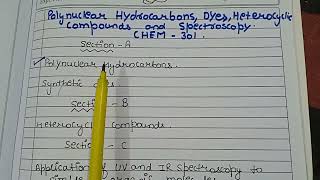 Polynuclear Hydrocarbons, Dyes, Heterocyclic
Compounds and Spectroscopy.
CHEM - 301.
Section - A
Polynuclear Hydrocarbons.
Synthetic
Section - B
Heterocyclic Compounds.
Section - C
Application of UV and IR Spectroscopy to